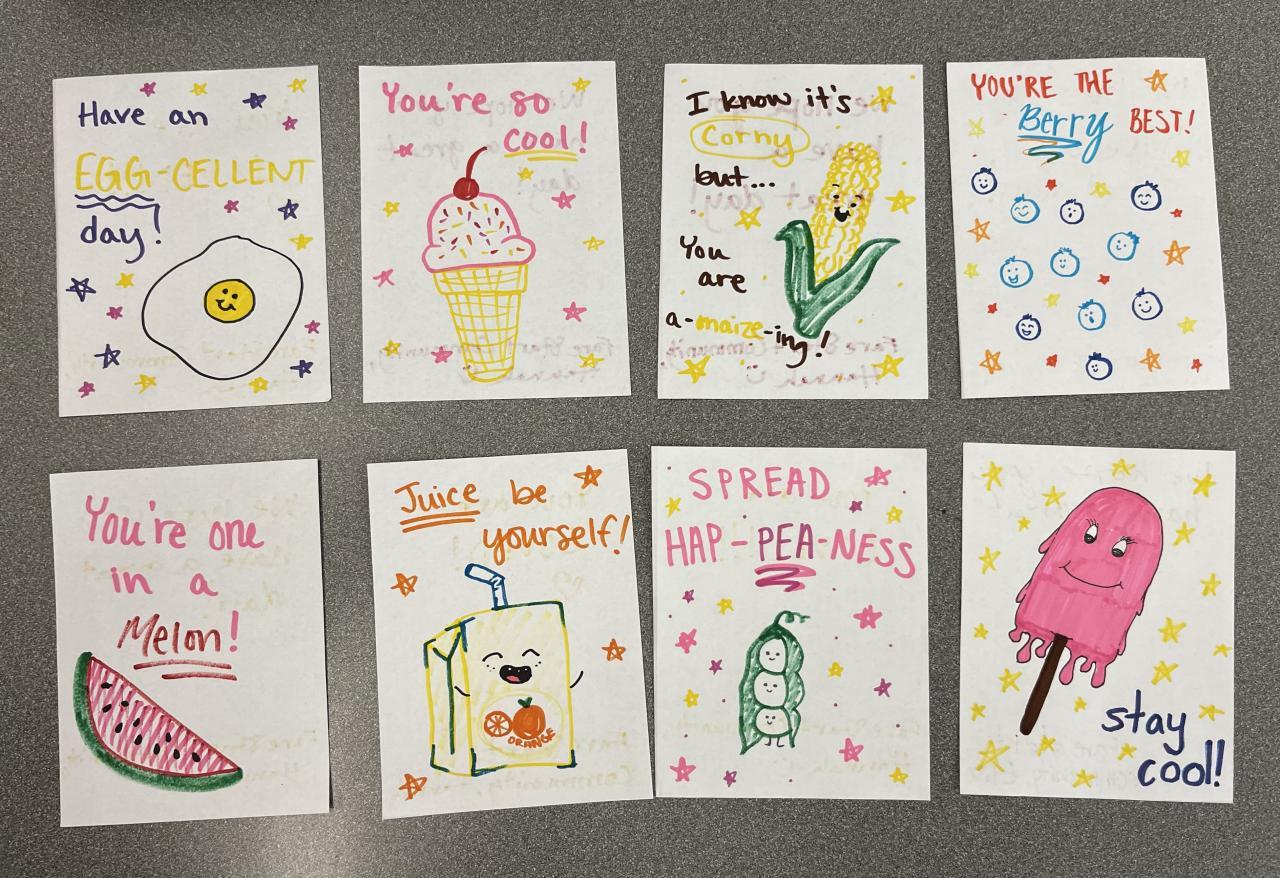 Have an
EGG-CELLENT
day!
You're so
cool!
I know it's
Corny
but...
You
are
a-maize-ing!
YOU'RE THE
Berry BEST!
You're one
in a
Melon!
Juice be
yourself!
ORANGE
SPREAD
HAP-PEA-NESS
stay
cool!